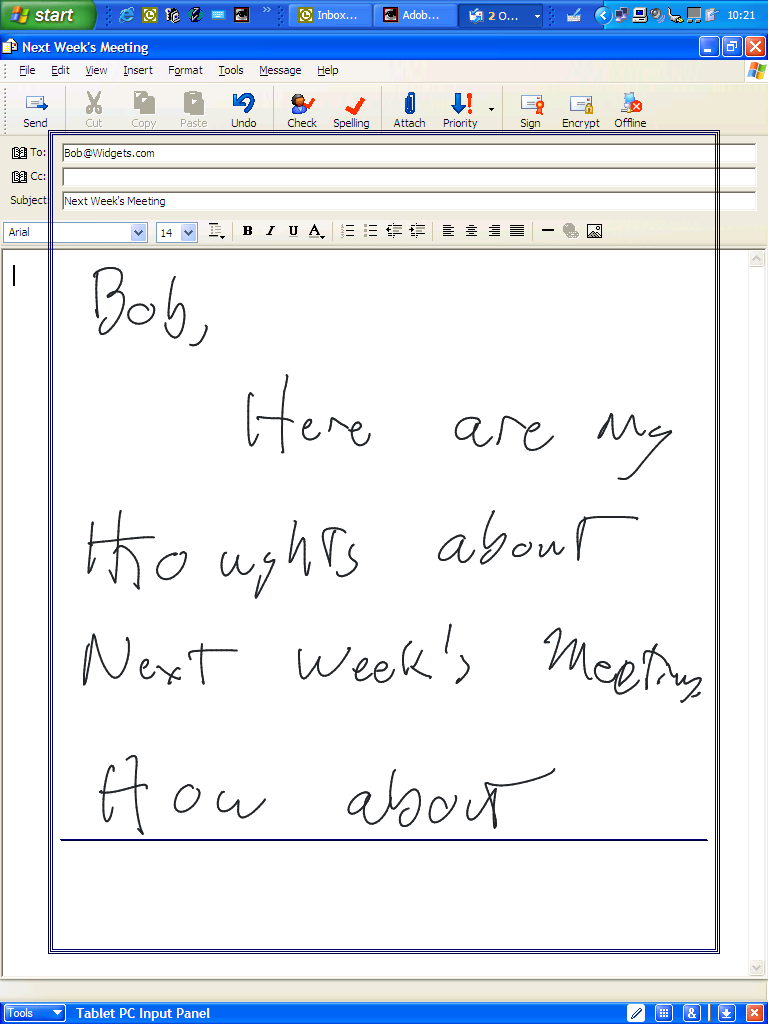 start Inbox... Adob... 2 O... 10:21
Next Week's Meeting
File Edit View Insert Format Tools Message Help
Send Cut Copy Paste Undo Check Spelling Attach Priority Sign Encrypt Offline
To: Bob@Widgets.com
Cc:
Subject Next Week's Meeting
Arial 14 B I U A
Bob,
Here are my
thoughts about
Next Week's Meeting
How about
Tools Tablet PC Input Panel &